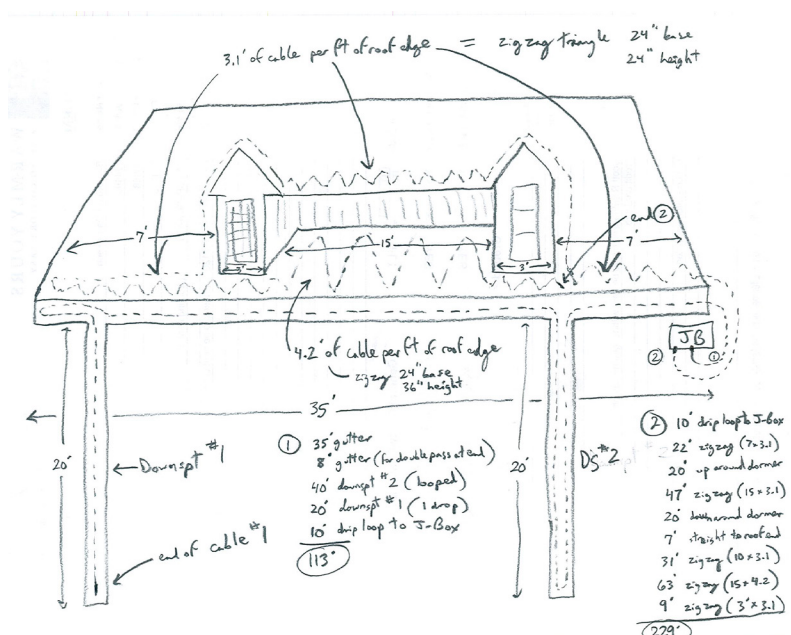 3.1' of cable per ft of roof edge = zigzag triangle 24" base
24" height
7'
3'
15'
3'
7'
end ②
JB
② ①
4.2' of cable per ft of roof edge
zigzag 24" base
36" height
35'
20'
Downspt #1
end of cable #1
20'
DS #2
① 35' gutter
8' gutter (for double pass at end)
40' downspt #2 (looped)
20' downspt #1 (1 drop)
10' drip loop to J-Box
113'
② 10' drip loop to J-Box
22' zigzag (7x3.1)
20' up around dormer
47' zigzag (15x3.1)
20' down around dormer
7' straight to roof end
31' zigzag (10x3.1)
63' zigzag (15x4.2)
9' zigzag (3'x3.1)
229'